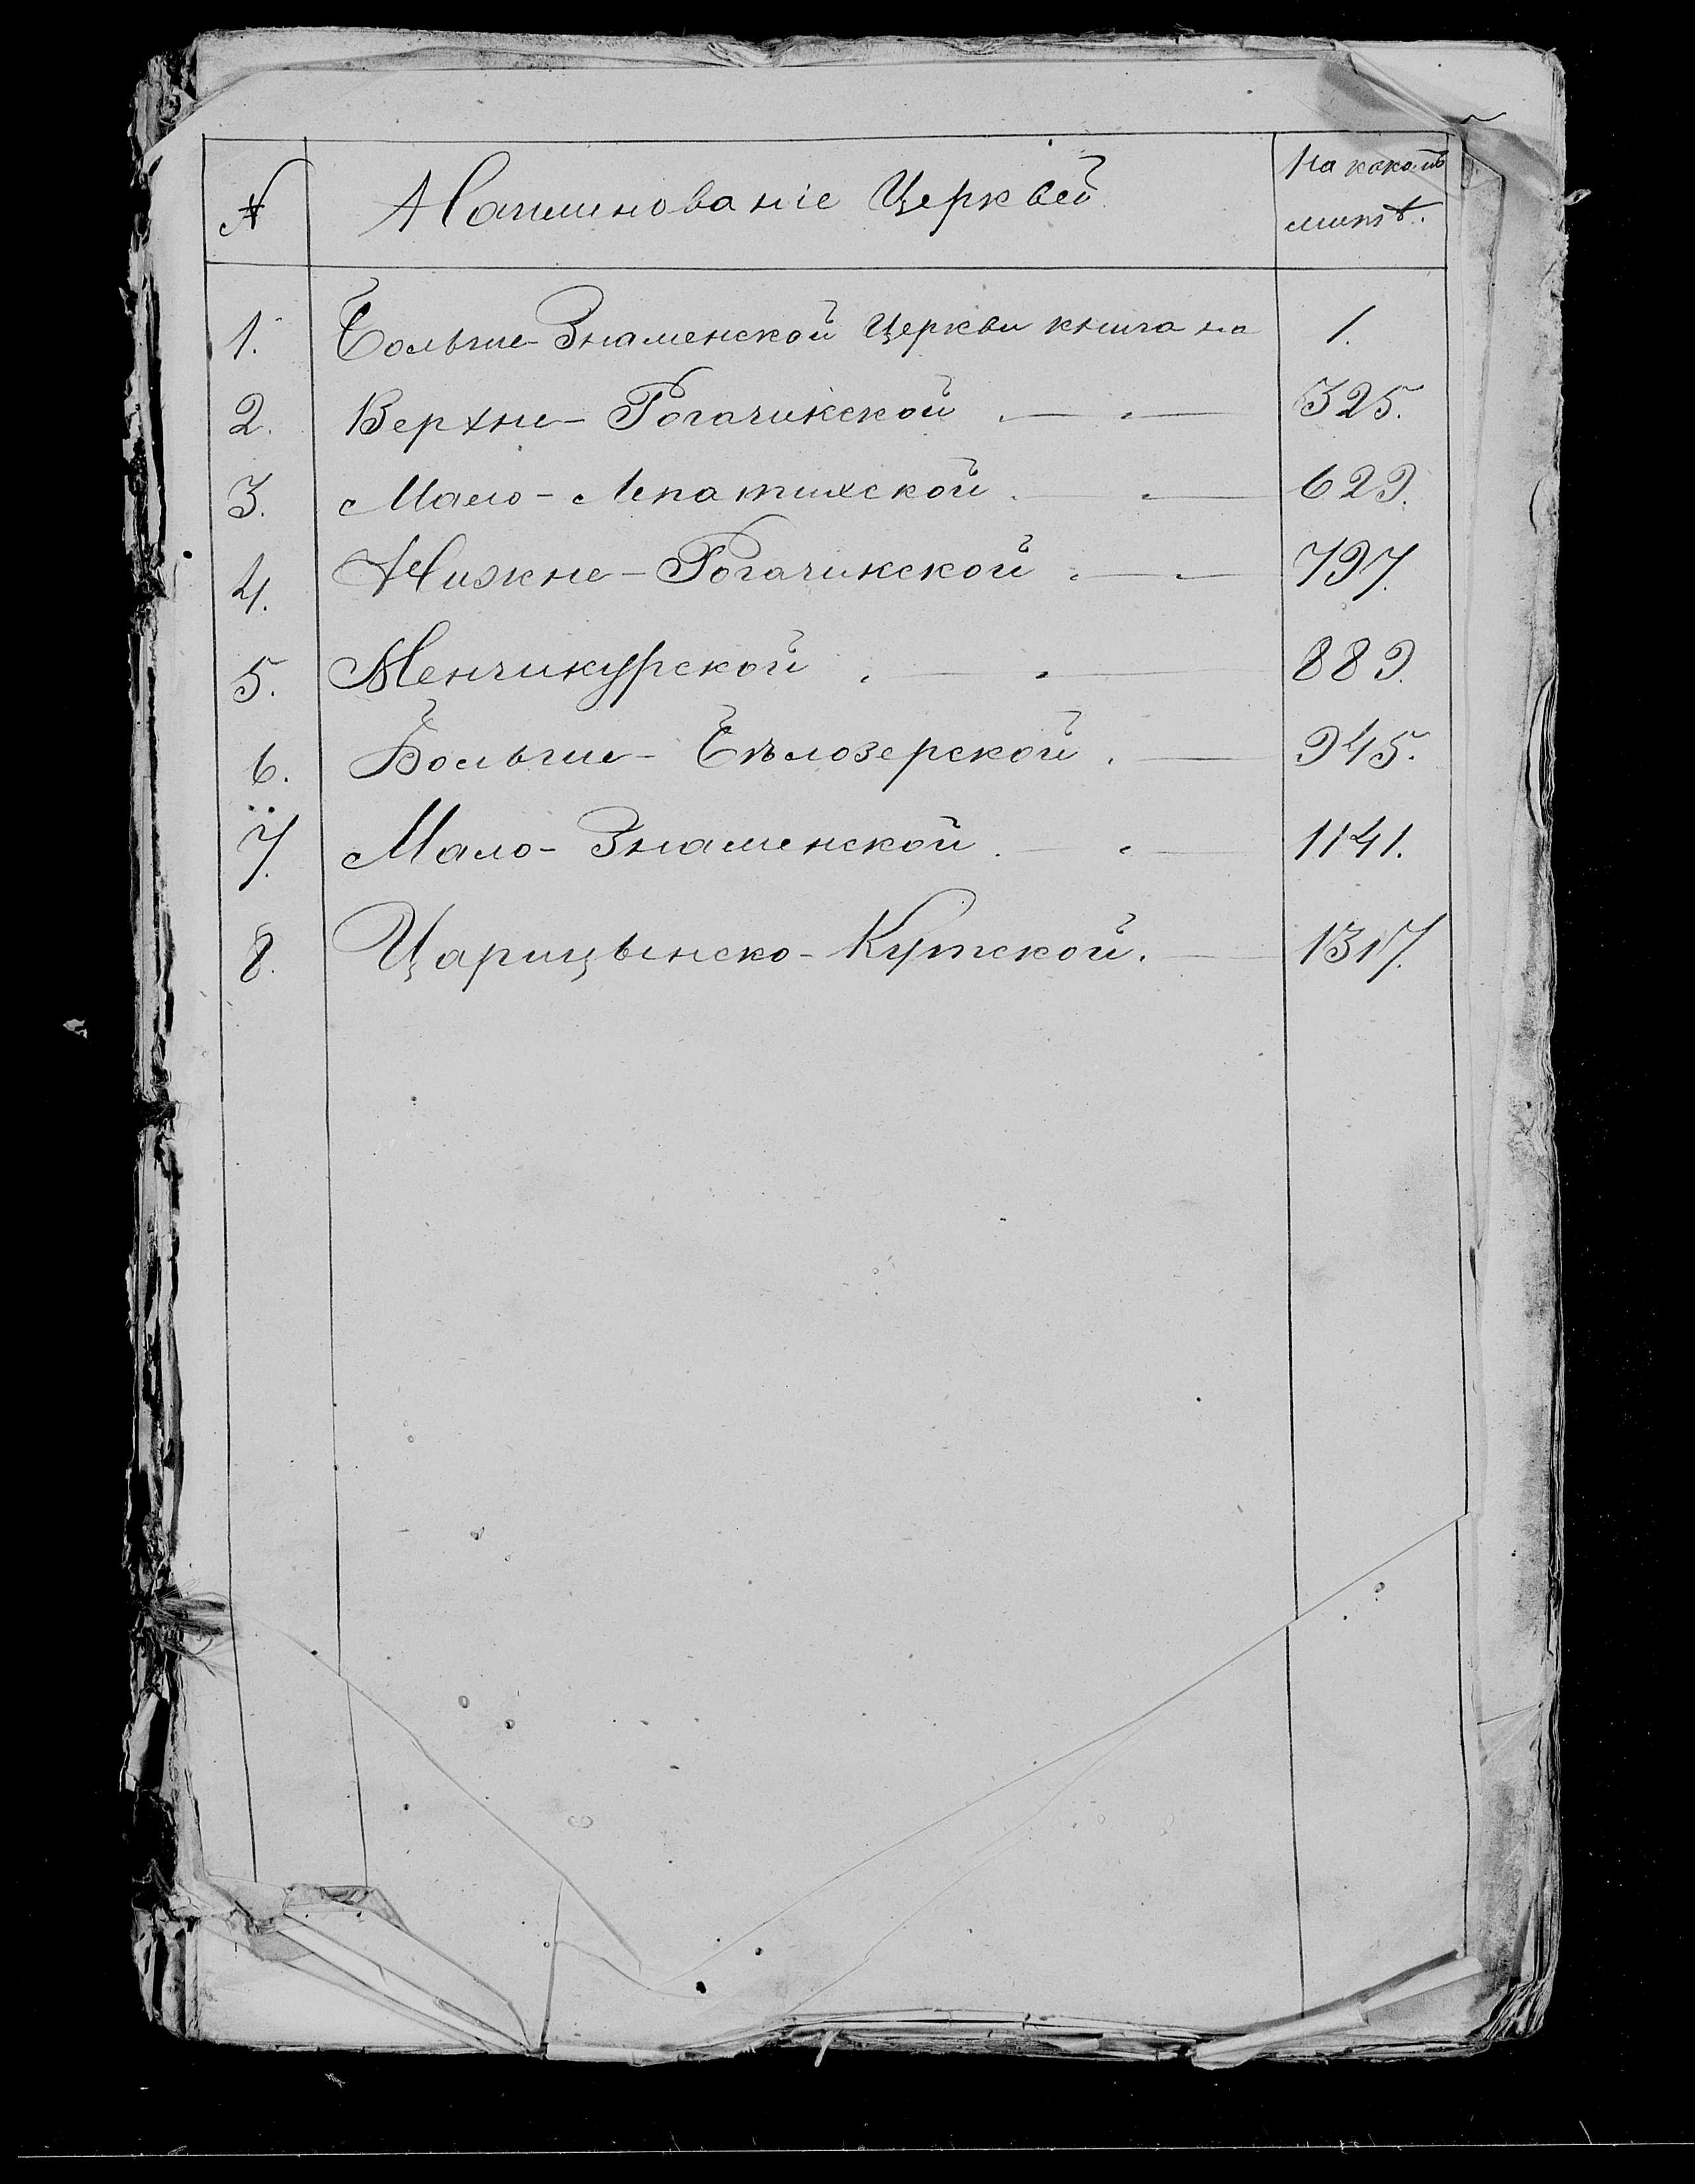 № Наименованіе Церквей На какомъ
листѣ.
1. Больше-Знаменской Церкви книга на 1.
2. Верхне-Рогачикской . — . — 325.
3. Мало-Лепатихской . — . — 629.
4. Нижне-Рогачикской . — . — 797.
5. Менчикурской . — . — 889.
6. Больше-Бѣлозерской . — 945.
7. Мало-Знаменской . — . — 1141.
8. Царицынско-Кутской. — 1317.